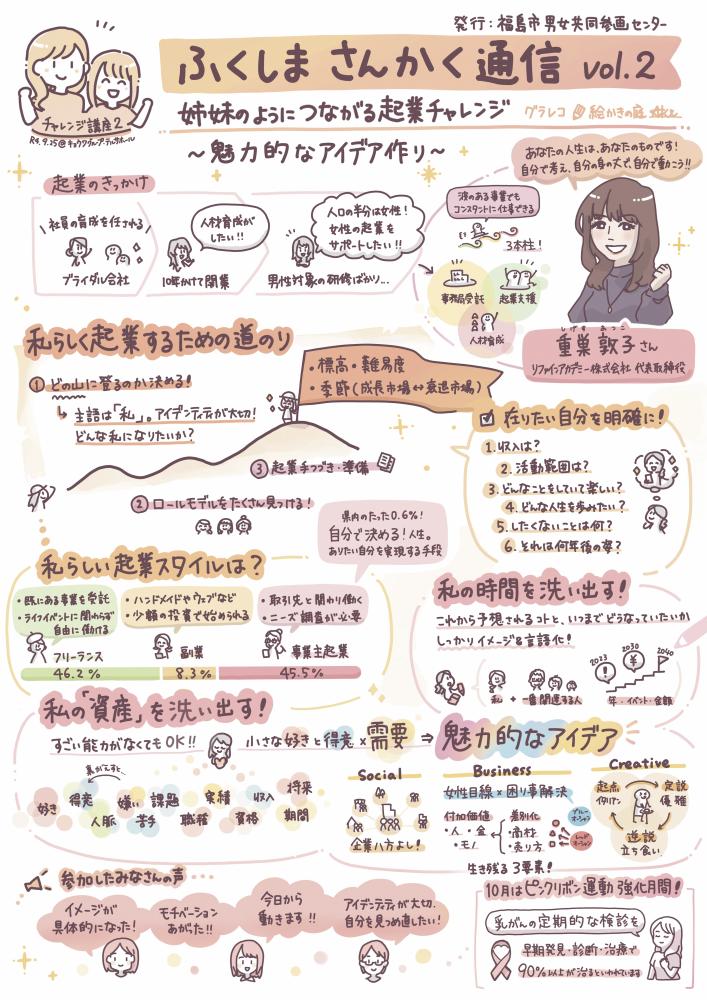 発行：福島市男女共同参画センター
ふくしま さんかく通信 vol.2
チャレンジ講座2
姉妹のようにつながる起業チャレンジ
グラレコ 絵かきの庭
～魅力的なアイデア作り～
あなたの人生は、あなたのものです！
自分で考え、自分の身の丈で、自分で動こう!!
起業のきっかけ
社員の育成を任される
ブライダル会社
人材育成が
したい!!
10年かけて開業
人口の半分は女性！
女性の起業を
サポートしたい!!
男性対象の研修ばかり…
波のある事業でも
コンスタントに仕事できる
3本柱！
事務局受託
起業支援
人材育成
しげす あつこ
重巣 敦子さん
リファインアカデミー株式会社 代表取締役
私らしく起業するための道のり
① どの山に登るのか決める！
↳ 主語は「私」。アイデンティティが大切！
どんな私になりたいか？
・標高・難易度
・季節（成長市場↔衰退市場）
③ 起業手つづき・準備
② ロールモデルをたくさん見つける！
在りたい自分を明確に！
1. 収入は？
2. 活動範囲は？
3. どんなことをしていて楽しい？
4. どんな人生を歩みたい？
5. したくないことは何？
6. それは何年後の姿？
県内のたった0.6%！
自分で決める！人生。
ありたい自分を実現する手段
私らしい起業スタイルは？
・既にある事業を受託
・ライフイベントに関わらず
自由に働ける
フリーランス
46.2%
・ハンドメイドやウェブなど
・少額の投資で始められる
副業
8.3%
・取引先と関わり働く
・ニーズ調査が必要
事業主起業
45.5%
私の時間を洗い出す！
これから予想されるコトと、いつまでどうなっていたいか
しっかりイメージ&言語化！
私 + 一番関連する人
2023
2030
2040
年・イベント・金額
私の「資産」を洗い出す！
すごい能力がなくてもOK!!
小さな好きと得意×需要 ⇒ 魅力的なアイデア
裏がえすと
好き
得意
嫌い
課題
実績
収入
将来
人脈
苦手
職種
資格
期間
Social
企業八方よし！
Business
女性目線×困り事解決
付加価値
・人・金
・モノ
・差別化
・商材
・売り方
ブルーオーシャン
レッドオーシャン
Creative
起点
イタリアン
定説
優雅
逆説
立ち食い
生き残る3要素！
参加したみなさんの声
イメージが
具体的になった！
モチベーション
あがった!!
今日から
動きます!!
アイデンティティが大切。
自分を見つめ直したい！
10月はピンクリボン運動 強化月間！
乳がんの定期的な検診を
早期発見・診断・治療で
90%以上が治るといわれています